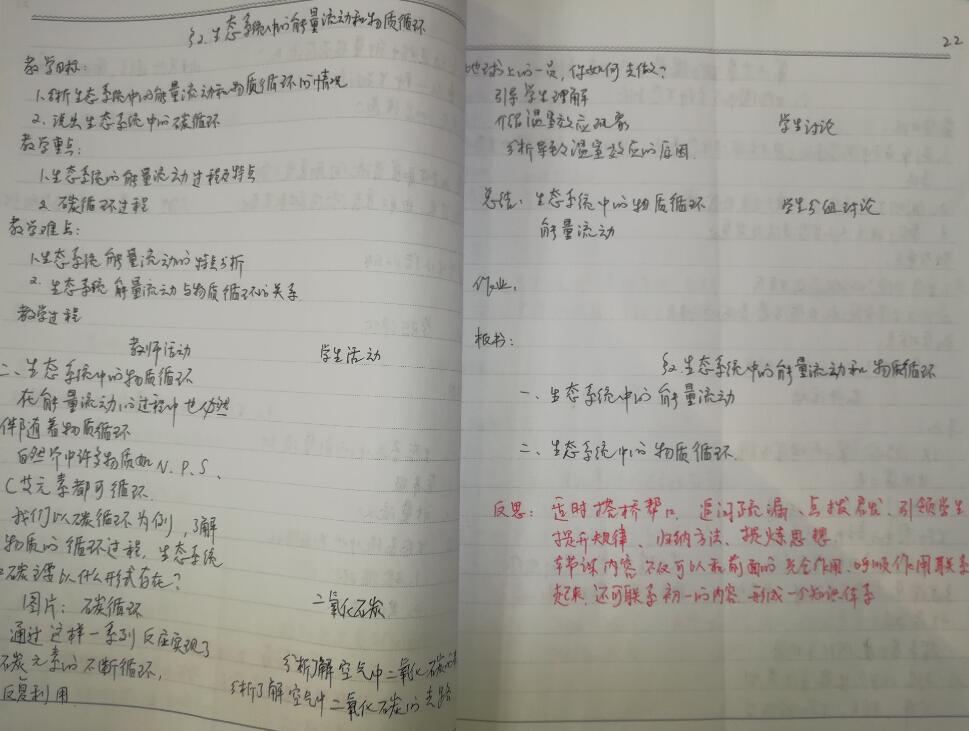 §2.生态系统中的能量流动和物质循环
教学目标:
1.分析生态系统中的能量流动和物质循环的情况
2.说出生态系统中的碳循环
教学重点:
1.生态系统的能量流动过程及特点
2.碳循环过程
教学难点:
1.生态系统能量流动的特点分析
2.生态系统能量流动与物质循环的关系
教学过程
教师活动 学生活动
二、生态系统中的物质循环
在能量流动的过程中也必然
伴随着物质循环
自然界中许多物质如N.P.S、
C等元素都可循环.
我们以碳循环为例,了解
物质的循环过程,生态系统
碳主要以什么形式存在?
图片:碳循环 二氧化碳.
通过这样一系列反应实现了
碳元素的不断循环,
反复利用.
分析了解空气中二氧化碳的
分析了解空气中二氧化碳的去路
22
地球上的一员,你如何去做?
引导学生理解
介绍温室效应现象 学生讨论
分析导致温室效应的原因.
总结:生态系统中的物质循环 学生分组讨论
能量流动
作业:
板书:
§2.生态系统中的能量流动和物质循环
一、生态系统中的能量流动
二、生态系统中的物质循环.
反思:适时搭桥帮口,追问疏漏、点拨启发、引领学生
提升规律、归纳方法、提炼思想
本节课内容不仅可以和前面的光合作用、呼吸作用联系
起来,还可联系初一的内容,形成一个知识体系